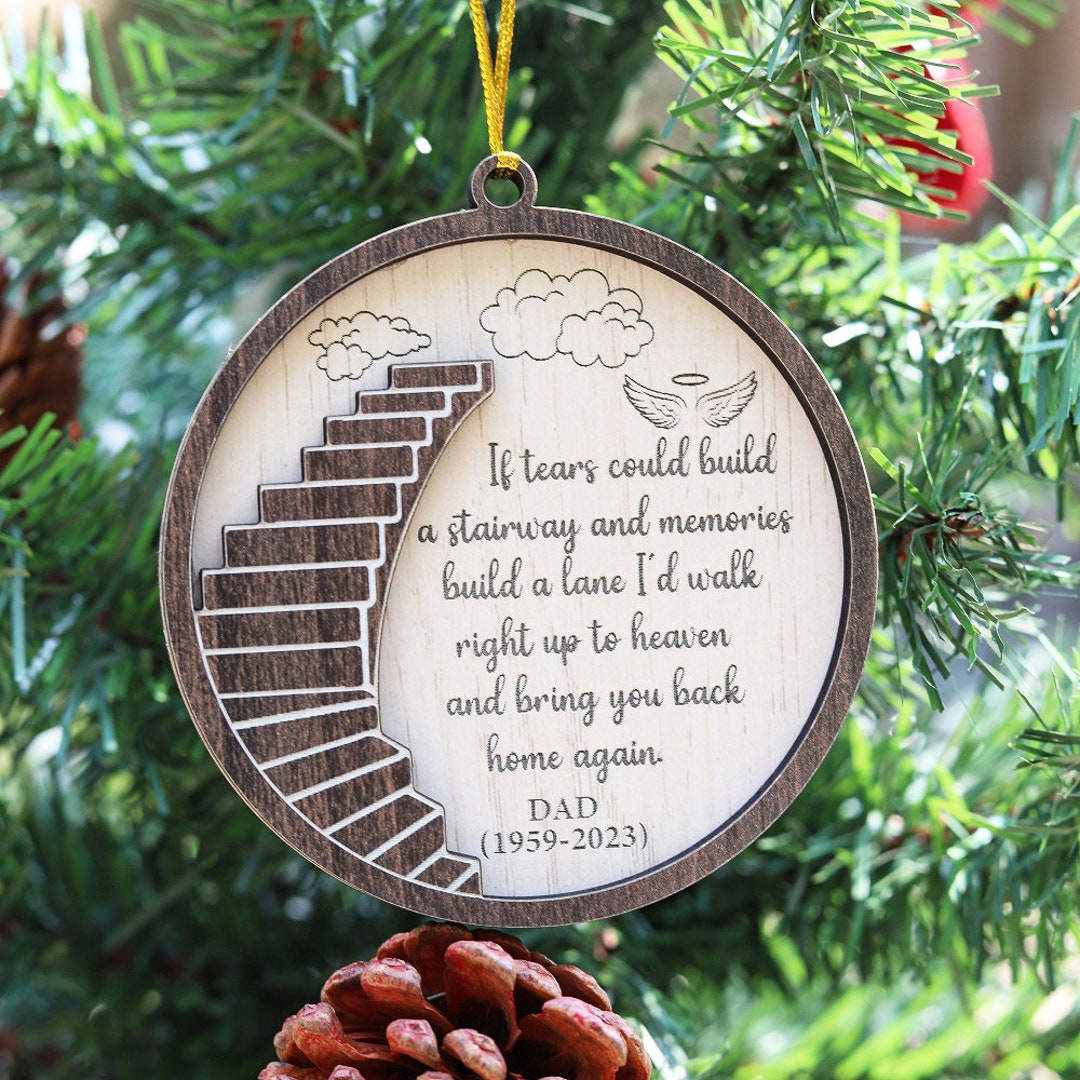 If tears could build
a stairway and memories
build a lane I'd walk
right up to heaven
and bring you back
home again.
DAD
(1959-2023)